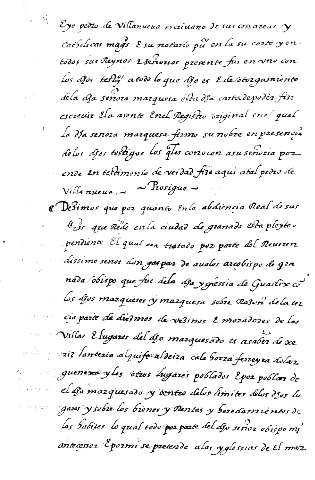 E yo pedro de Villanueva escrivano de sus cesareas y
catholicas mag.es E su notario pu.co en la su corte y en
todos sus Reynos E señorios presente fui en uno con
los dhos testi.os a todo lo que dho es E de otorgamiento
de la dha señora marquesa esta dha carta de poder fiz
escrevir E la asente En el Registro original en el qual
la dha señora marquesa firmo su nobre en presencia
de los dhos testigos los q.les conocen a su señoria por
ende en testimonio de verdad fize aqui a tal pedro de
Villanueva. — Prosigue —
Dezimos que por quanto En la abdiencia Real de sus
m.des que Reside en la ciudad de granada esta pleyto
pendiente El qual sea tratado por parte del Reveren
dissimo señor don gaspar de avalos arcobispo de gra
nada obispo que fue de la dha yglesia de Guadix co
los dhos marqueses y marquesa sobre Razon de la ter
cia parte de diezmos de vezinos E moradores de las
Villas E lugares del dho marquesado es a saber de xe
riz lanteira alquife aldeira cala horra ferreyra dolar
guenexa y los otros lugares poblados E por poblar de
el dho marquesado y dentro de los limites de los dhos lu
gares y sobre los bienes y Rentas y heredamientos de
los habizes lo qual todo por parte del dho señor obispo mi
antecesor E por mi se pretende a las yglesias de El mar